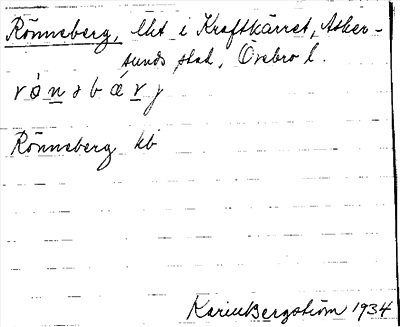 Rönneberg, lht i Kraftkärret, Asker-
sunds stad, Örebro l.
Rönneberg kb
Karin Bergström 1934